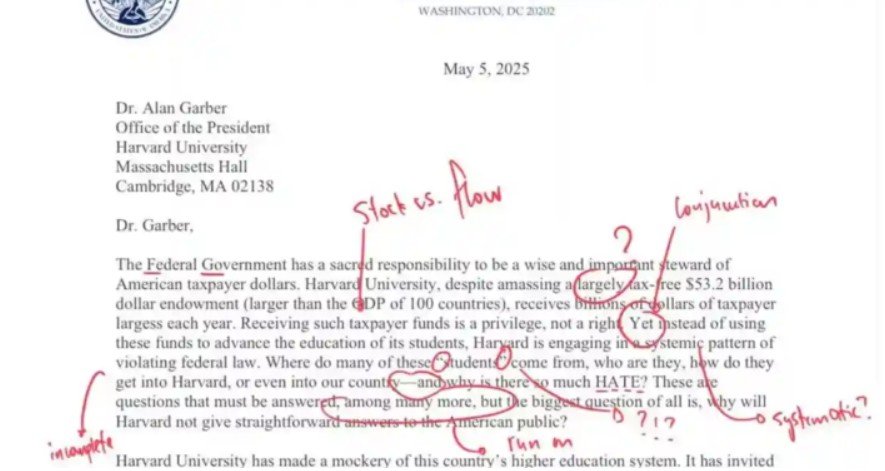 WASHINGTON, DC 20202
May 5, 2025
Dr. Alan Garber
Office of the President
Harvard University
Massachusetts Hall
Cambridge, MA 02138
Stock vs. flow
Conjunction
Dr. Garber,
?
The Federal Government has a sacred responsibility to be a wise and important steward of
American taxpayer dollars. Harvard University, despite amassing a largely tax-free $53.2 billion
dollar endowment (larger than the GDP of 100 countries), receives billions of dollars of taxpayer
largess each year. Receiving such taxpayer funds is a privilege, not a right. Yet instead of using
these funds to advance the education of its students, Harvard is engaging in a systemic pattern of
violating federal law. Where do many of these "students" come from, who are they, how do they
get into Harvard, or even into our country—and why is there so much HATE? These are
questions that must be answered, among many more, but the biggest question of all is, why will
Harvard not give straightforward answers to the American public?
?!?
systematic?
incomplete
run on
Harvard University has made a mockery of this country's higher education system. It has invited